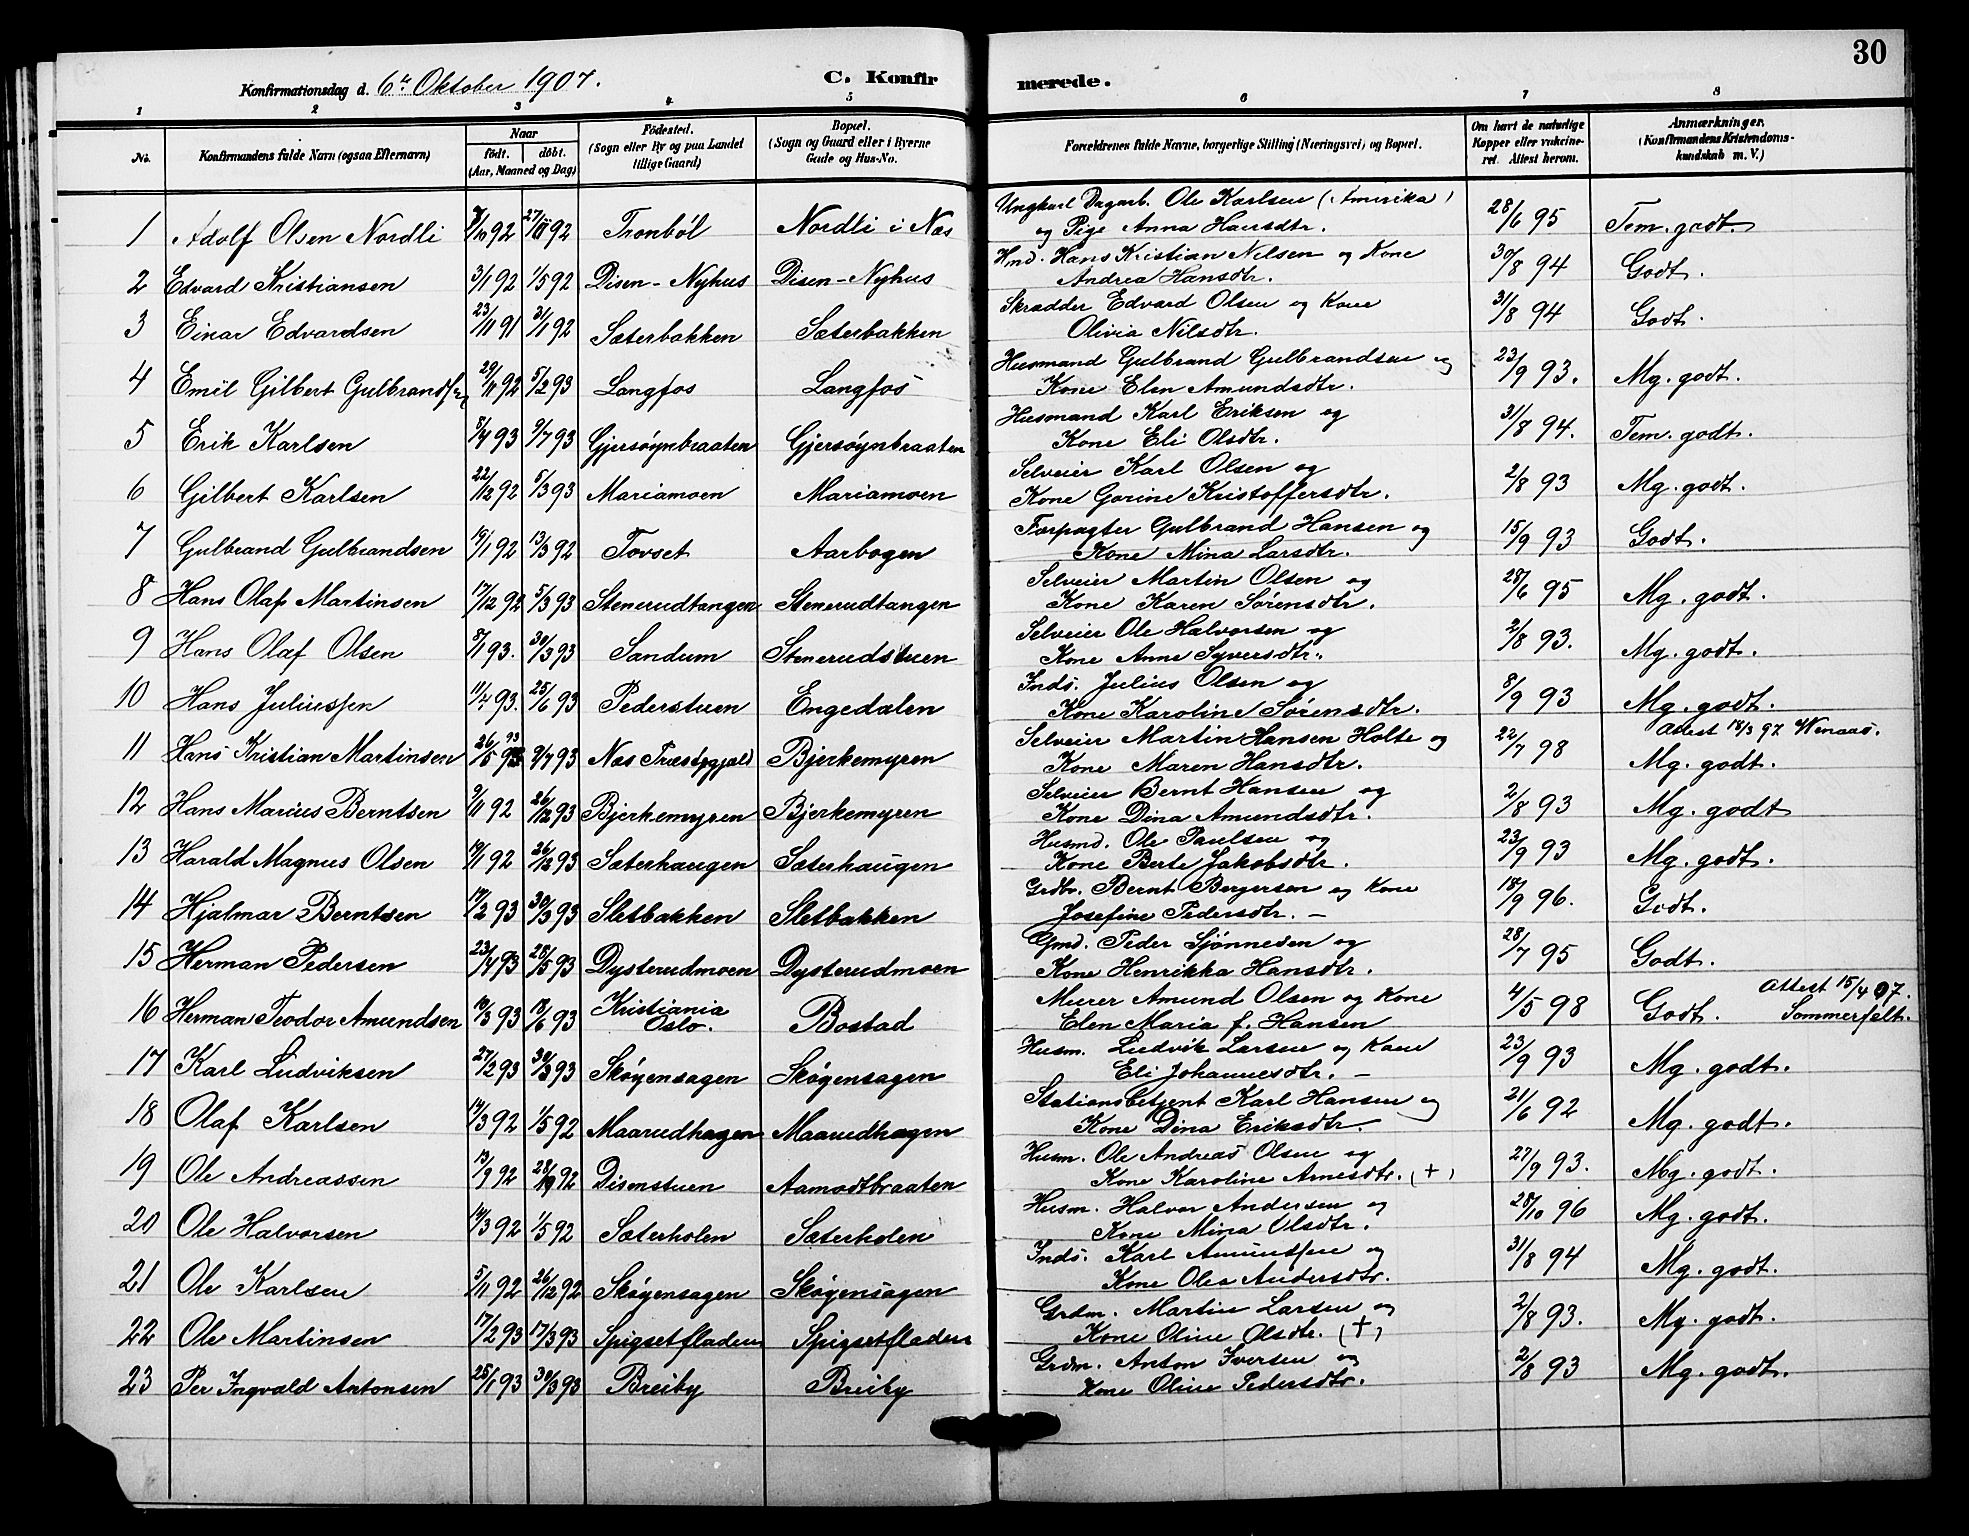 30
Konfirmationsdag d. 6te Oktober 1907. C. Konfirmerede.
1 2 3 4 5 6 7 8
No. Konfirmandens fulde Navn (ogsaa Efternavn) Naar födt. döbt. (Aar, Maaned og Dag) Födested. (Sogn eller By og paa Landet tillige Gaard) Bopæl. (Sogn og Gaard eller i Byerne Gade og Hus-No. Forældrenes fulde Navne, borgerlige Stilling (Næringsvei) og Bopæl. Om havt de naturlige Kopper eller vakcineret. Attest herom. Anmærkninger. (Konfirmandens Kristendomskundskab m. V.)
1 Adolf Olsen Nordli 92 92 Tronböl Nordli i Nes Ungkarl Dagarb. Ole Karlsen (Amerika) og Pige Anna Hansdtr. 28/6 95 Tem. godt.
2 Edvard Kristiansen 3/1 92 1/5 92 Disen-Nyhus Disen-Nyhus Hmd. Hans Kristian Nilsen og Kone Andrea Hansdtr. 30/8 94 Godt.
3 Einar Edvardsen 23/11 91 31/1 92 Sæterbakken Sæterbakken Skrædder Edvard Olsen og Kone Olivia Nilsdtr. 31/8 94 Godt.
4 Emil Gilbert Gulbrandsen 29/11 92 5/2 93 Langfos Langfos Husmand Gulbrand Gulbrandsen og Kone Elen Amundsdtr. 23/9 93. Mg. godt.
5 Erik Karlsen 8/4 93 9/7 93 Gjersöynbraaten Gjersöynbraaten Husmand Karl Eriksen og Kone Eli Olsdtr. 31/8 94. Tem. godt.
6 Gilbert Karlsen 22/12 92 5/3 93 Mariamoen Mariamoen Selveier Karl Olsen og Kone Gorine Kristoffersdtr. 2/8 93 Mg. godt.
7 Gulbrand Gulbrandsen 19/1 92 13/3 92 Tovset Aarbogen Forpagter Gulbrand Hansen og Kone Mina Larsdtr. 15/9 93 Godt.
8 Hans Olaf Martinsen 17/12 92 5/3 93 Stenerudtangen Stenerudtangen Selveier Martin Olsen og Kone Karen Sörensdtr. 28/6 95 Mg. godt.
9 Hans Olaf Olsen 8/1 93. 30/3 93 Sandum Stenerudstuen Selveier Ole Halvorsen og Kone Anne Syversdtr. 2/8 93. Mg. godt.
10 Hans Juliussen 11/4 93. 25/6 93 Pederstuen Engedalen Inds. Julius Olsen og Kone Karoline Sörensdtr. 8/9 93 Mg. godt.
11 Hans Kristian Martinsen 26/5 93 9/7 93 Nes Præstegjæld Bjerkemyren Selveier Martin Hansen Holte og Kone Maren Hansdtr. 22/7 98 Mg. godt. Attest 18/3 97 Wenaas.
12 Hans Marius Berntsen 9/11 92 26/12 93 Bjerkemyren Bjerkemyren Selveier Bernt Hansen og Kone Dina Amundsdtr. 2/8 93 Mg. godt
13 Harald Magnus Olsen 92 26/12 93 Sæterhaugen Sæterhaugen Husmd. Ole Paulsen og Kone Berte Jakobsdtr. 23/9 93 Mg. godt.
14 Hjalmar Berntsen 17/2 93 30/3 93 Sletbakken Sletbakken Grdbr. Bernt Bergersen og Kone Josefine Pedersdtr. – 18/9 96. Godt.
15 Herman Pedersen 23/4 93 28/5 93 Dysterudmoen Dysterudmoen Gmd. Peder Sjönnesen og Kone Henrikka Hansdtr. 28/7 95 Godt.
16 Herman Teodor Amundsen 10/3 93 93 Kristiania Oslo. Bostad Murer Amund Olsen og Kone Elen Maria f. Hansen 4/5 98 Godt. Attest 15/4 07. Sommerfelt.
17 Karl Ludviksen 27/2 93 30/3 93 Sköyensagen Sköyensagen Husm. Ludvik Larsen og Kone Eli Johannesdtr. – 23/9 93 Mg. godt.
18 Olaf Karlsen 14/3 92 1/5 92 Maarudhagen Maarudhagen Stationsbetjent Karl Hansen og Kone Dina Eriksdtr. 21/6 92 Mg. godt.
19 Ole Andreassen 13/9 92 92 Disenstuen Aamodtbraaten Husm. Ole Andreas Olsen og Kone Karoline Arnesdtr. (+) 27/9 93. Mg. godt.
20 Ole Halvorsen 14/3 92 1/5 92 Sæterholen Sæterholen Husm. Halvor Andersen og Kone Mina Olsdtr. 28/10 96 Mg. godt.
21 Ole Karlsen 5/11 92 26/12 92 Sköyensagen Sköyensagen Inds. Karl Amundsen og Kone Olea Andersdtr. 31/8 94 Mg. godt.
22 Ole Martinsen 17/2 93 17/3 93 Spigsetfladen Spigsetfladen Grdm. Martin Larsen og Kone Oline Olsdtr. (+) 2/8 93. Mg. godt.
23 Per Ingvald Antonsen 25/1 93 30/3 93 Breiby Breiby Grdm. Anton Iversen og Kone Oline Pedersdtr. 2/8 93 Mg. godt.